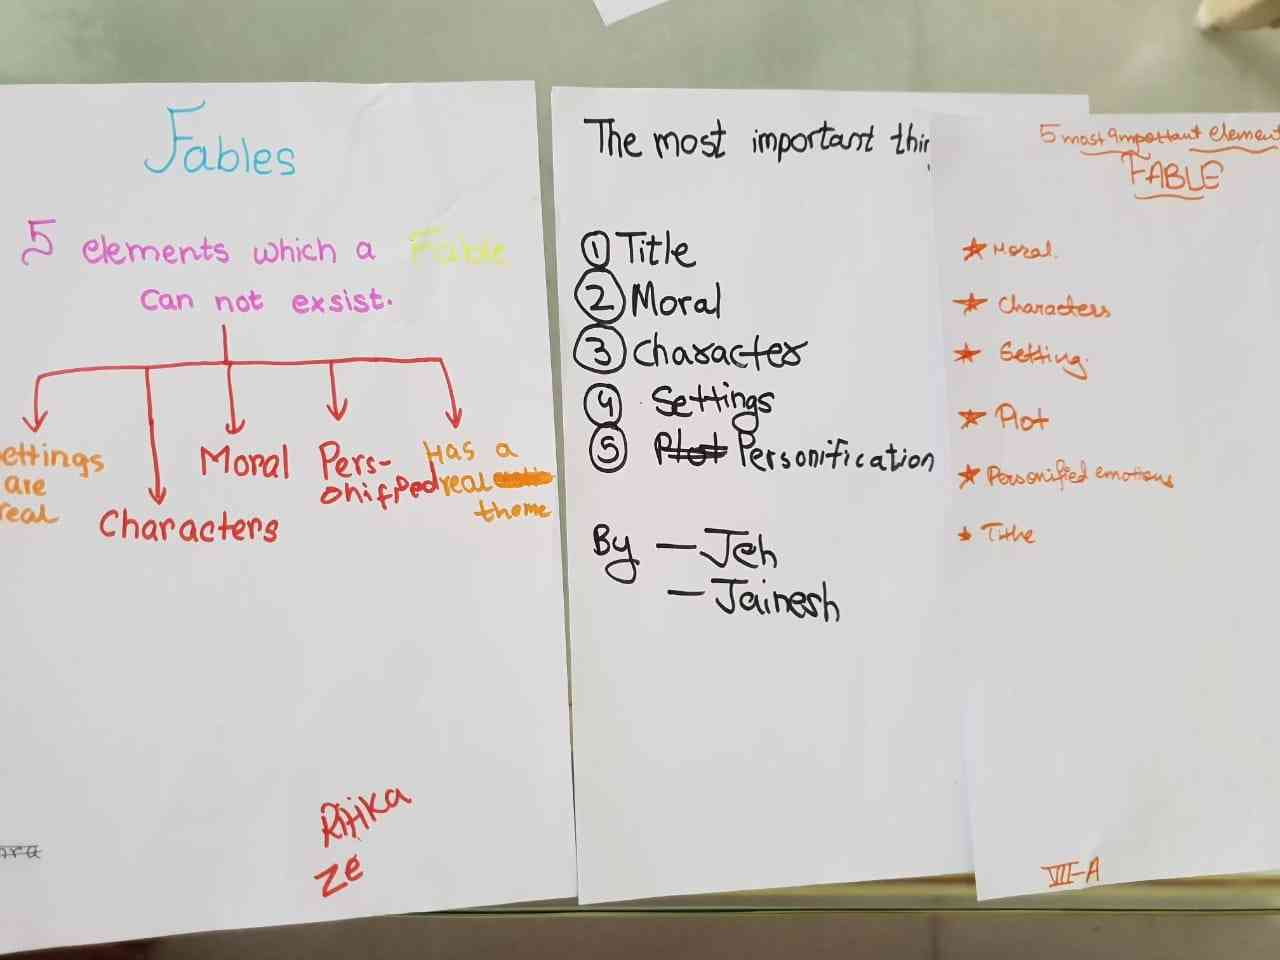 Fables
5 elements which a Fable
can not exsist.
ettings
are
real
Characters
Moral
Pers-
onified
Has a
real
theme
Ritika
Ze
The most important thin
1 Title
2 Moral
3 Character
4 Settings
5 Plot Personification
By — Jeh
— Jainesh
5 most important element
FABLE
★ Moral.
★ Characters
★ Setting.
★ Plot
★ Personified emotions
★ Title
VII-A